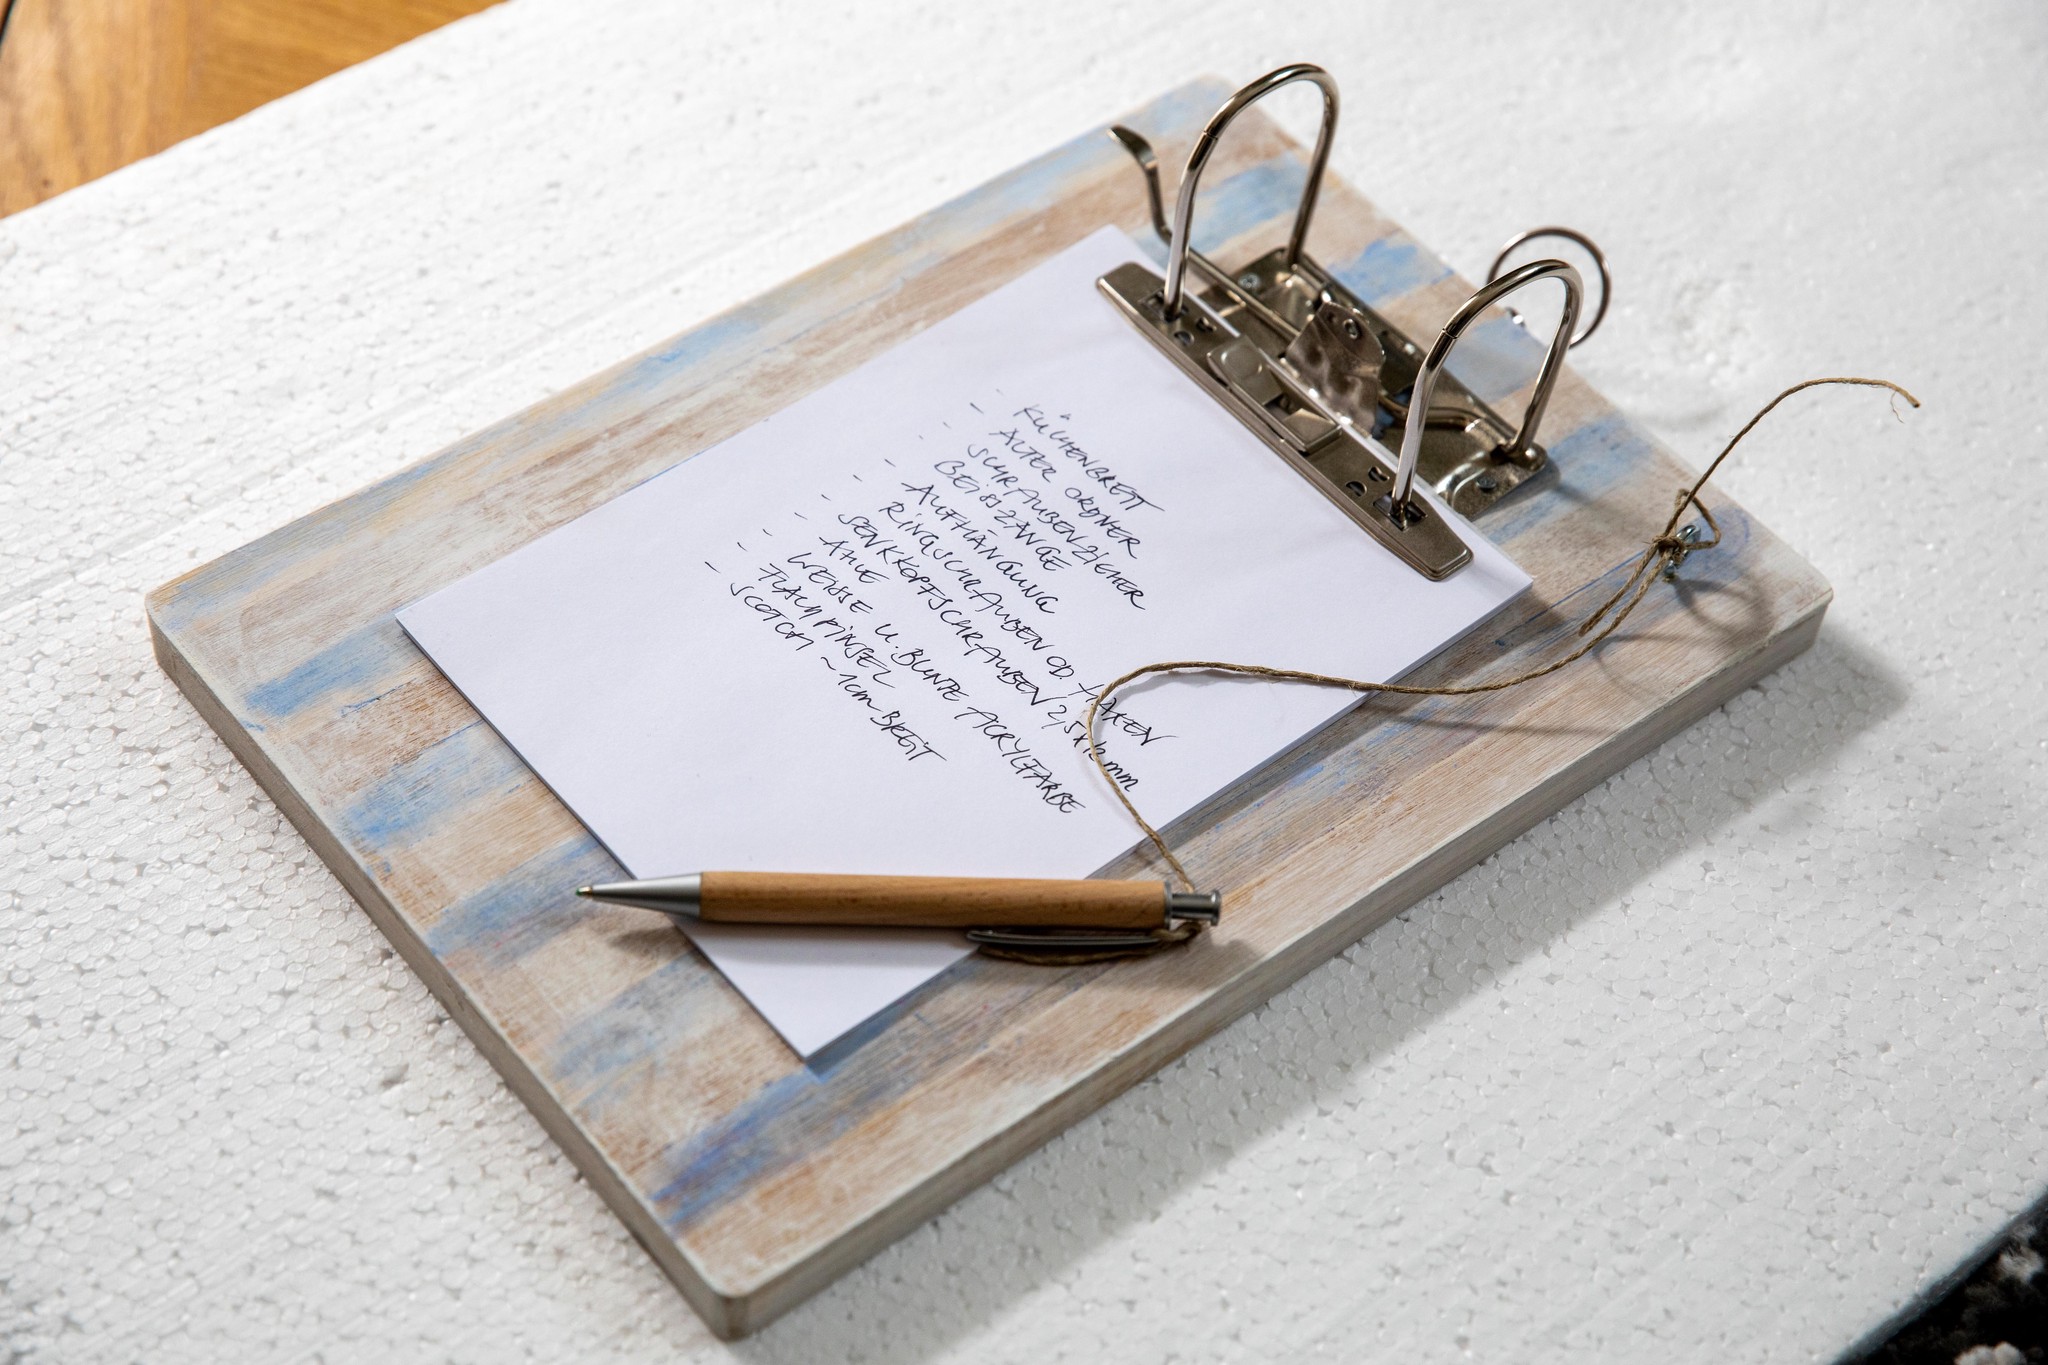 - KÜCHENBRETT
- ALTER ORDNER
- SCHRAUBENZIEHER
- BEISSZANGE
- AUFHÄNGUNG
- RINGSCHRAUBEN OD. HAKEN
- SENKKOPFSCHRAUBEN 2,5x12mm
- AHLE
- WEISSE U. BUNTE ACRYLFARBE
- FLACHPINSEL
- SCOTCH ~1cm BREIT